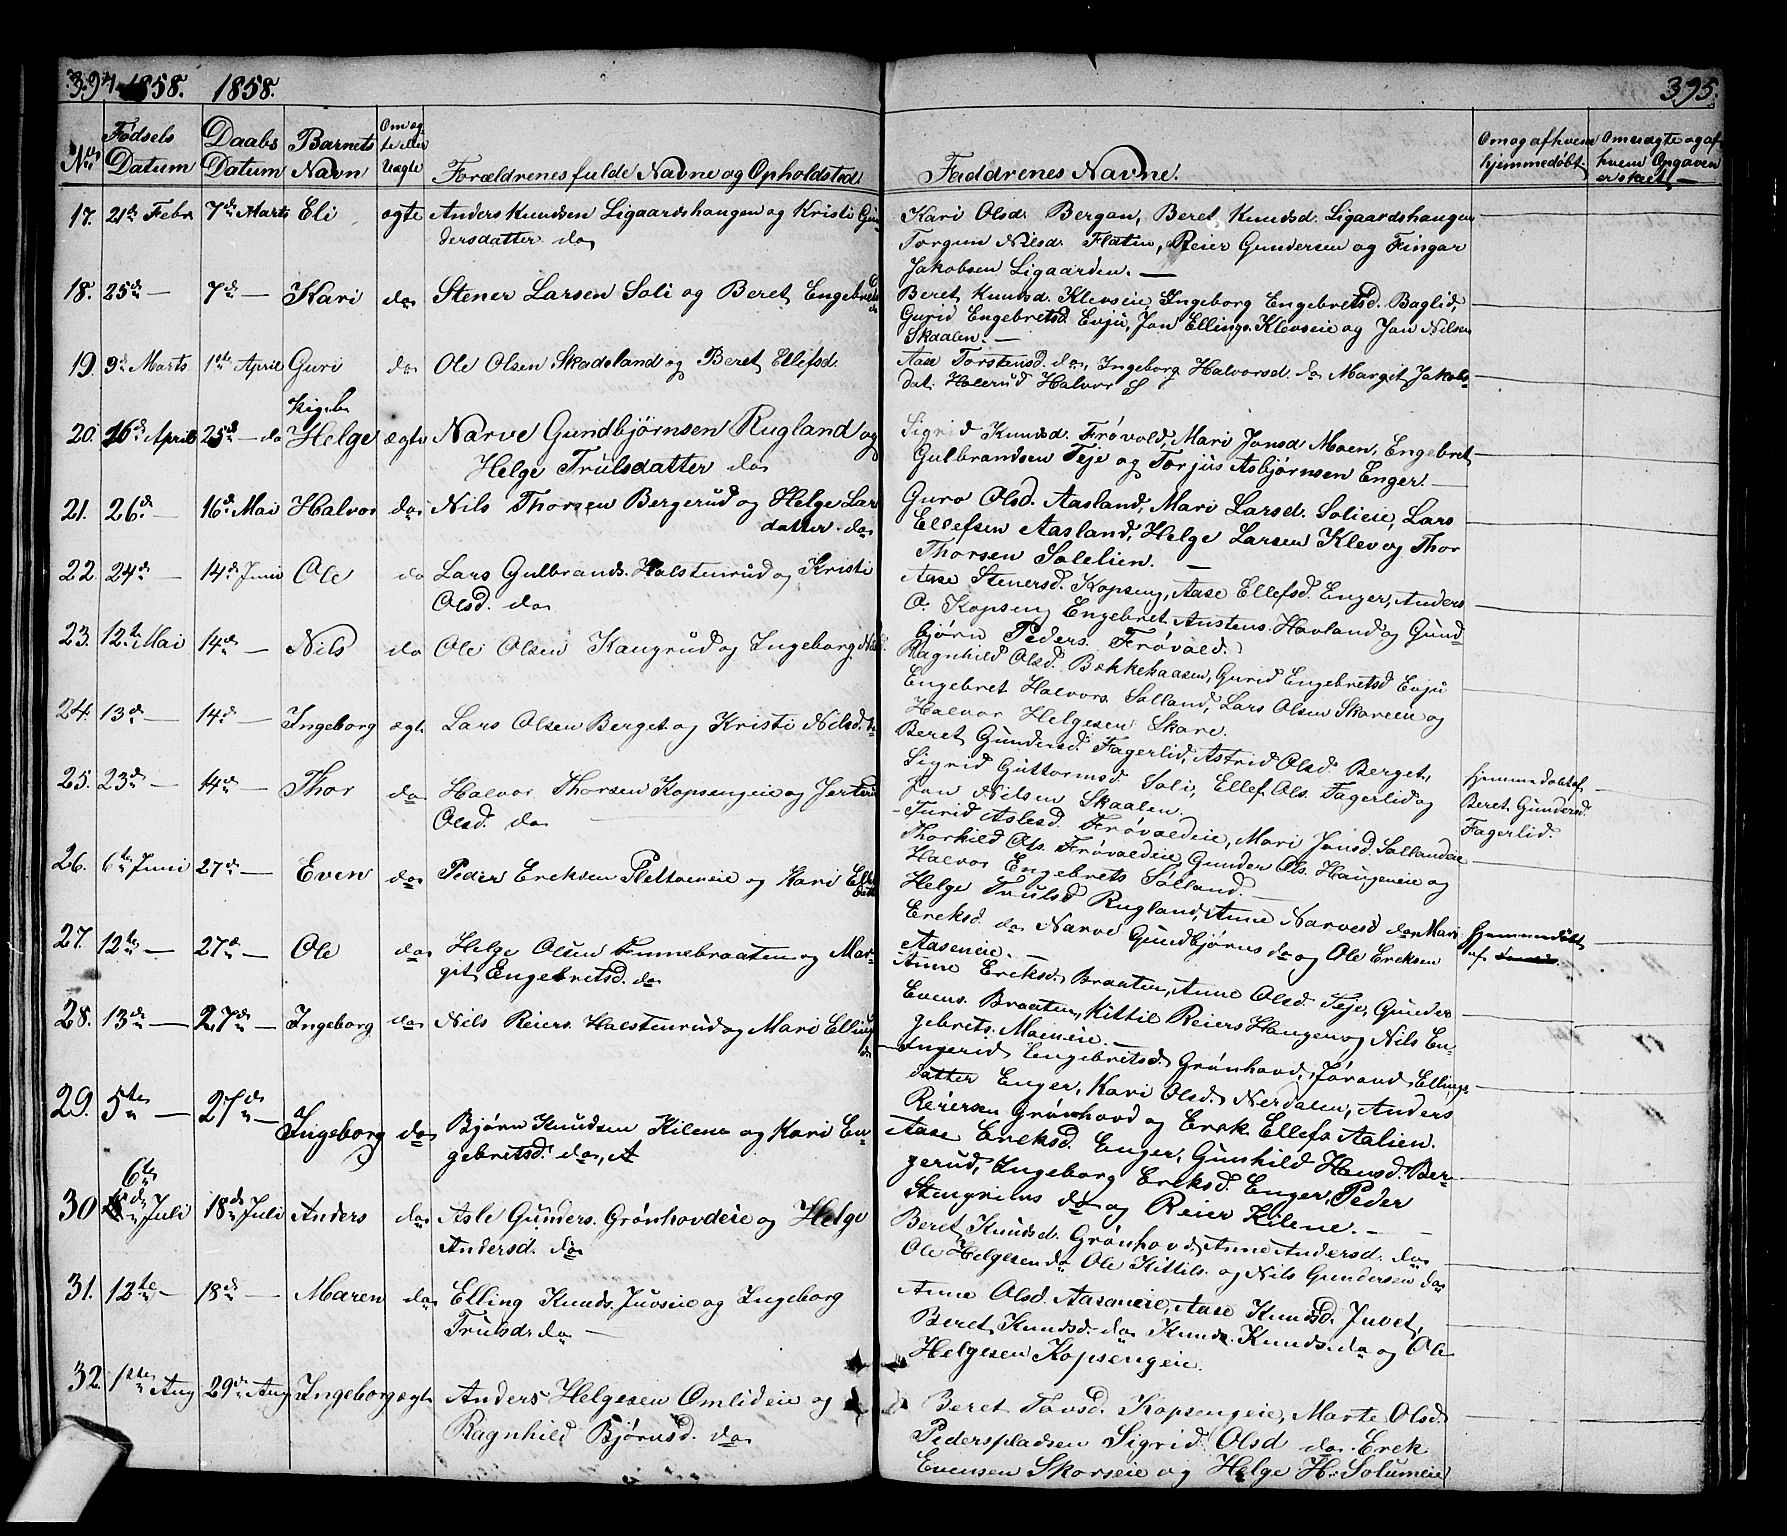 394. 1858. 1858.
No. Fødsels Datum Daabs Datum Barnets Navn Om ægte eller Uægte Forældrenes fulde Navne og Opholdsted
17. 21de Febr 7de Marts Eli ægte Anders Knudsen Ligaardshaugen og Kristi Gun-
dersdatter do
18. 25de — 7de — Kari do Stener Larsen Soli og Beret Engebretsd.
do
19. 3de Marts 1ste April Guri do Ole Olsen Skadeland og Beret Ellefsd.
20. 16de April 25de — do Helge ægte Narve Gundbjørnsen Rugland og
Helge Trulsdatter do
21. 26de — 16de Mai Halvor do Nils Thorsen Bergerud og Helge Lars
datter do
22. 24de — 14de Juni Ole do Lars Gulbrands. Halstenrud og Kristi
Olsd. do
23. 12te Mai 14de — Nils do Ole Olsen Kaugerud og Ingeborg
24. 13de — 14de — Ingeborg ægte Lars Olsen Berget og Kristi Nilsd. do
25. 23de — 14de — Thor do Halvor Thorsen Kopsengeie og
Olsd. do —
26. 6te Juni 27de — Even do Peder Eriksen Plettoeneie og Kari
27. 12te — 27de — Ole do Helge Olsen Finnebraaten og Mar-
git Engebretsd. do
28. 13de — 27de — Ingeborg do Nils Reiers. Halstenrud og Mari Ellings
d.
29. 5te — 27de — Ingeborg do Bjørn Knudsen Kilene og Kari En-
gebretsd. do
6te
30. Juli 18de Juli Anders do Asle Gunders. Grønhovdeie og Helge
Andersd. do
31. 12te — 18de — Maren do Elling Knuds. Juvseie og Ingeborg
Trulsd. do —
32. 1ste Aug 29de Aug Ingeborg ægte Anders Helgesen Omlideie og
Ragnhild Bjørnsd. do
395.
Faddrenes Navne. Om og af hvem hjemmedøbt. Om uægte og af hvem Opgaven er skeet —
Kari Olsd. Bergan, Beret Knudsd. Ligaardshaugen
Torgun Nilsd. Flatin, Reier Gundersen og Fingar
Jakobsen Ligaarden. —
Beret Knudsd. Klevseie, Ingeborg Engebretsd. Baglid,
Gurid Engebretsd. Evju, Jon Ellings. Klevseie og Jon Nilsen
Skaalen. —
Aase Torstensd. do, Ingeborg Halvorsd. do Margit Jakobs-
dat. Holerud Halvor S
Sigrid Knudsd. Frøvold, Mari Jonsd. Moen, Engebret
Gulbrandsen Teje og Torjus Asbjørnsen Enger —
Guro Olsd. Aasland, Mari Larsd. Solieie, Lars
Ellefsen Aasland, Helge Larsen Klev og Thor
Thorsen Solelien. —
Aase Stenersd. Kopseng, Aase Ellefsd. Enger, Anders
O. Kopseng Engebret Austens. Havland og Gund-
bjørn Peders. Frøvold.
Ragnhild Olsd. Bækkehaasen, Gurid Engebretsd Evju
Engebret Halvors. Solland, Lars Olsen Skareen og
Halvor Helgesen Skare.
Beret Gundersd. Fagerlid, Astrid Olsd. Berget,
Sigrid Guttormsd. Soli, Ellef Ols. Fagerlid og
Jon Nilsen Skaalen.
hjemmedøbt af
Beret Gundersd.
Fagerlid.
Turid Aslesd. Frøvoldeie, Mari Jonsd. Sollandeie
Thorkild Ols. Frøvoldeie, Gunder Ols. Haugeneie og
Halvor Engebrets Solland.
Helge Trulsd Rugland, Anne Narvesd do Mari
Ereksd. do Narve Gundbjørns do og Ole Ereksen
Aaseneie. —
hjemmedøbt
af
Anne Ereksd. Braaten, Anne Olsd. Teje, Gunder
Evens. Braaten, Kittil Reiers Haugen og Nils En-
gebrets. Moineie. —
Ingerid Engebretsd. Grønhovd, Jørand Ellings-
datter Enger, Kari Olsd. Nerdalen, Anders
Reiersen Grønhovd og Erek Ellefs Aalien.
Aase Ereksd. Enger, Gunhild Hansd. Ber-
gerud, Ingeborg Ereksd. Enger, Peder
do og Reier Kilene. —
Beret Knudsd. Grønhovd, Anne Andersd. do
Ole Helgesen do Ole Kittils. og Nils Gundersen do
Anne Olsd. Aaseneie, Aase Knudsd. Juvet,
Beret Knudsd. do Knud Knuds. do og Ole
Helgesen Kopsengeie.
Beret Tovsd. Kopsengeie, Marte Olsd.
Pederspladsen Sigrid Olsd do Erek
Evensen Skarseie og Helge H. Solumeie